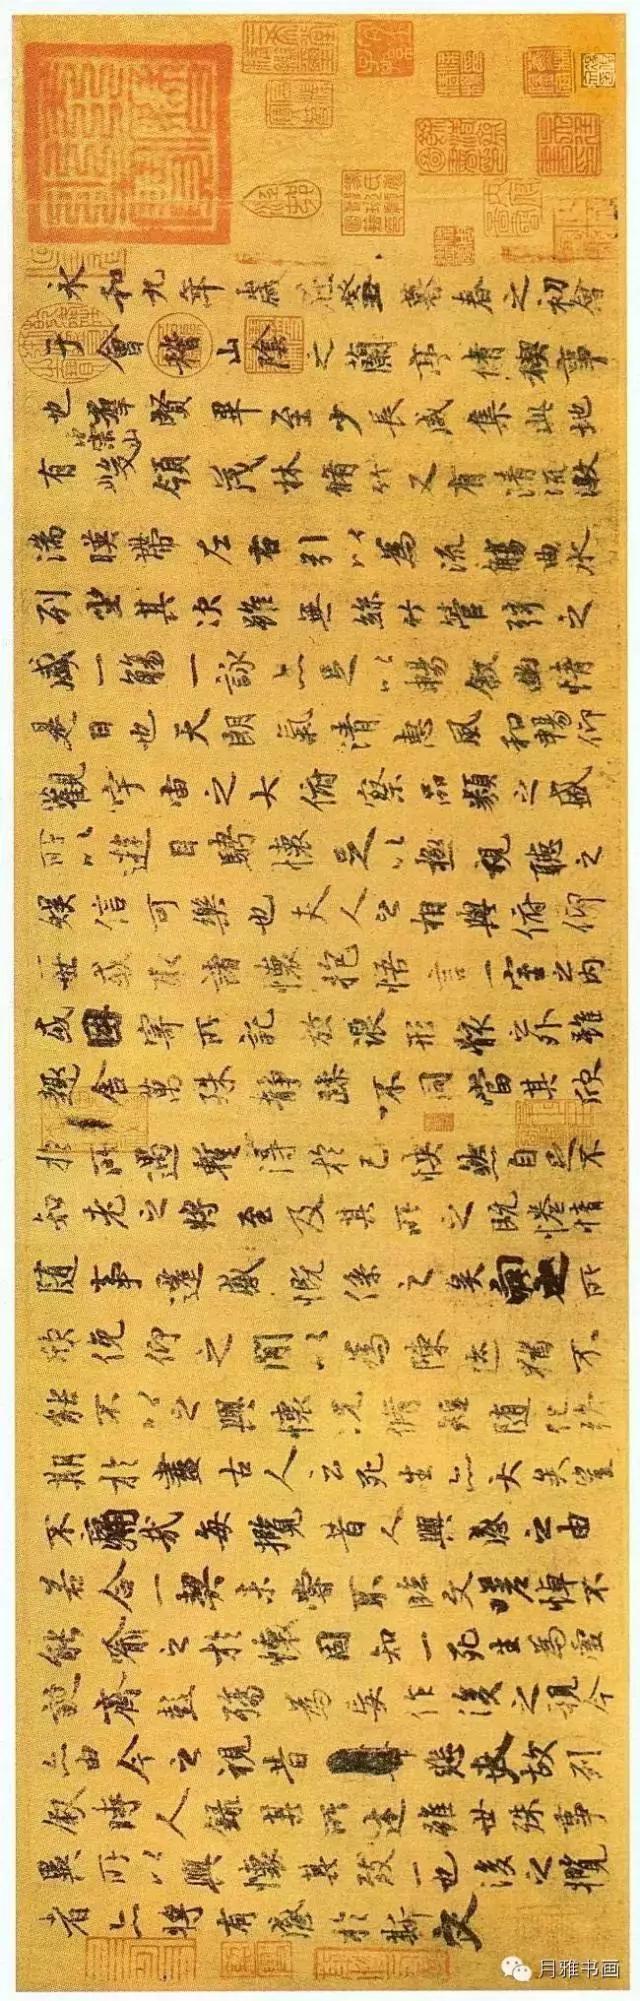 永和九年歲在癸丑暮春之初會
于會稽山陰之蘭亭脩稧事
也群賢畢至少長咸集此地
有崇山峻領茂林脩竹又有清流激
湍暎帶左右引以為流觴曲水
列坐其次雖無絲竹管弦之
盛一觴一詠亦足以暢敘幽情
是日也天朗氣清惠風和暢仰
觀宇宙之大俯察品類之盛
所以遊目騁懷足以極視聽之
娛信可樂也夫人之相與俯仰
一世或取諸懷抱悟言一室之內
或因寄所託放浪形骸之外雖
趣舍萬殊靜躁不同當其欣
於所遇暫得於己怏然自足不
知老之將至及其所之既惓情
隨事遷感慨係之矣向之所
欣俛仰之閒以為陳迹猶不
能不以之興懷況脩短隨化終
期於盡古人云死生亦大矣豈
不痛哉每攬昔人興感之由
若合一契未嘗不臨文嗟悼不
能喻之於懷固知一死生為虛
誕齊彭殤為妄作後之視今
亦由今之視昔悲夫故列
敘時人錄其所述雖世殊事
異所以興懷其致一也後之攬
者亦將有感於斯文
月雅书画